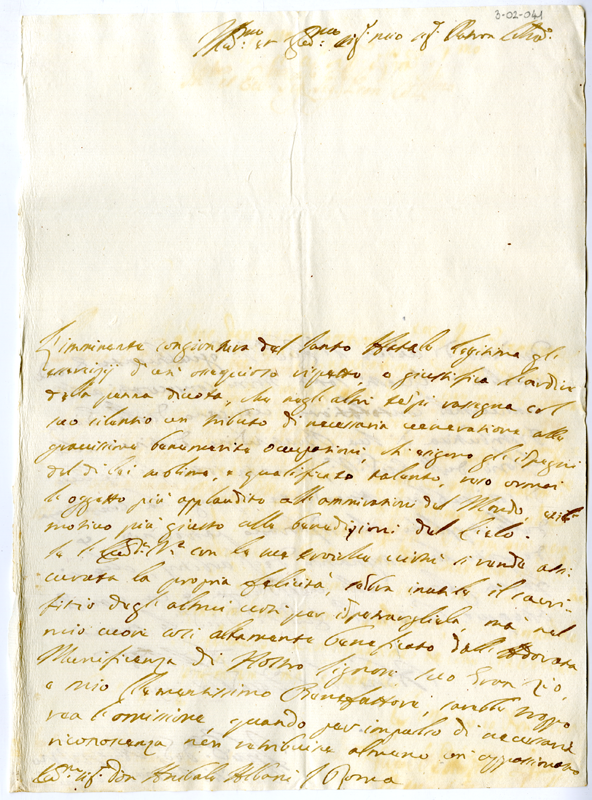 3-02-041
Ill.mo et Ecc.mo Sig.r mio Sig.r Patron Col.mo
L'imminente congiontura del Santo Natale legitima gli
esercizij d'un ossequioso rispetto, e giustifica l'ardire
della penna divota, che negli altri tempi rassegna col
suo silentio un tributo di necessaria veneratione alle
gravissime benemerite occupationi, ch'esigono gl'Impieghi
del di Lei sublime, e qualificato talento, reso ormai
l'oggetto più applaudito all'ammiratione del Mondo, e il
motivo più giusto alle benedizioni del Cielo.
Se l'Ecc.za V.ra con le sue eroiche virtù si rende assi-
curata la propria felicità, sembra inutile il sacri-
fitio degl'altrui voti per impetrargliela, mà nel
mio cuore così altamente beneficato dall'adorata
Munificenza di Nostro Signore suo Gran Zio,
e mio Clementissimo Benefattore, sarebbe troppo
rea l'omissione, quando per impulso di necessaria
riconoscenza non retribuisse almeno un'ossequioso
Ecc.mo Sig.r Don Annibale Albani / Roma